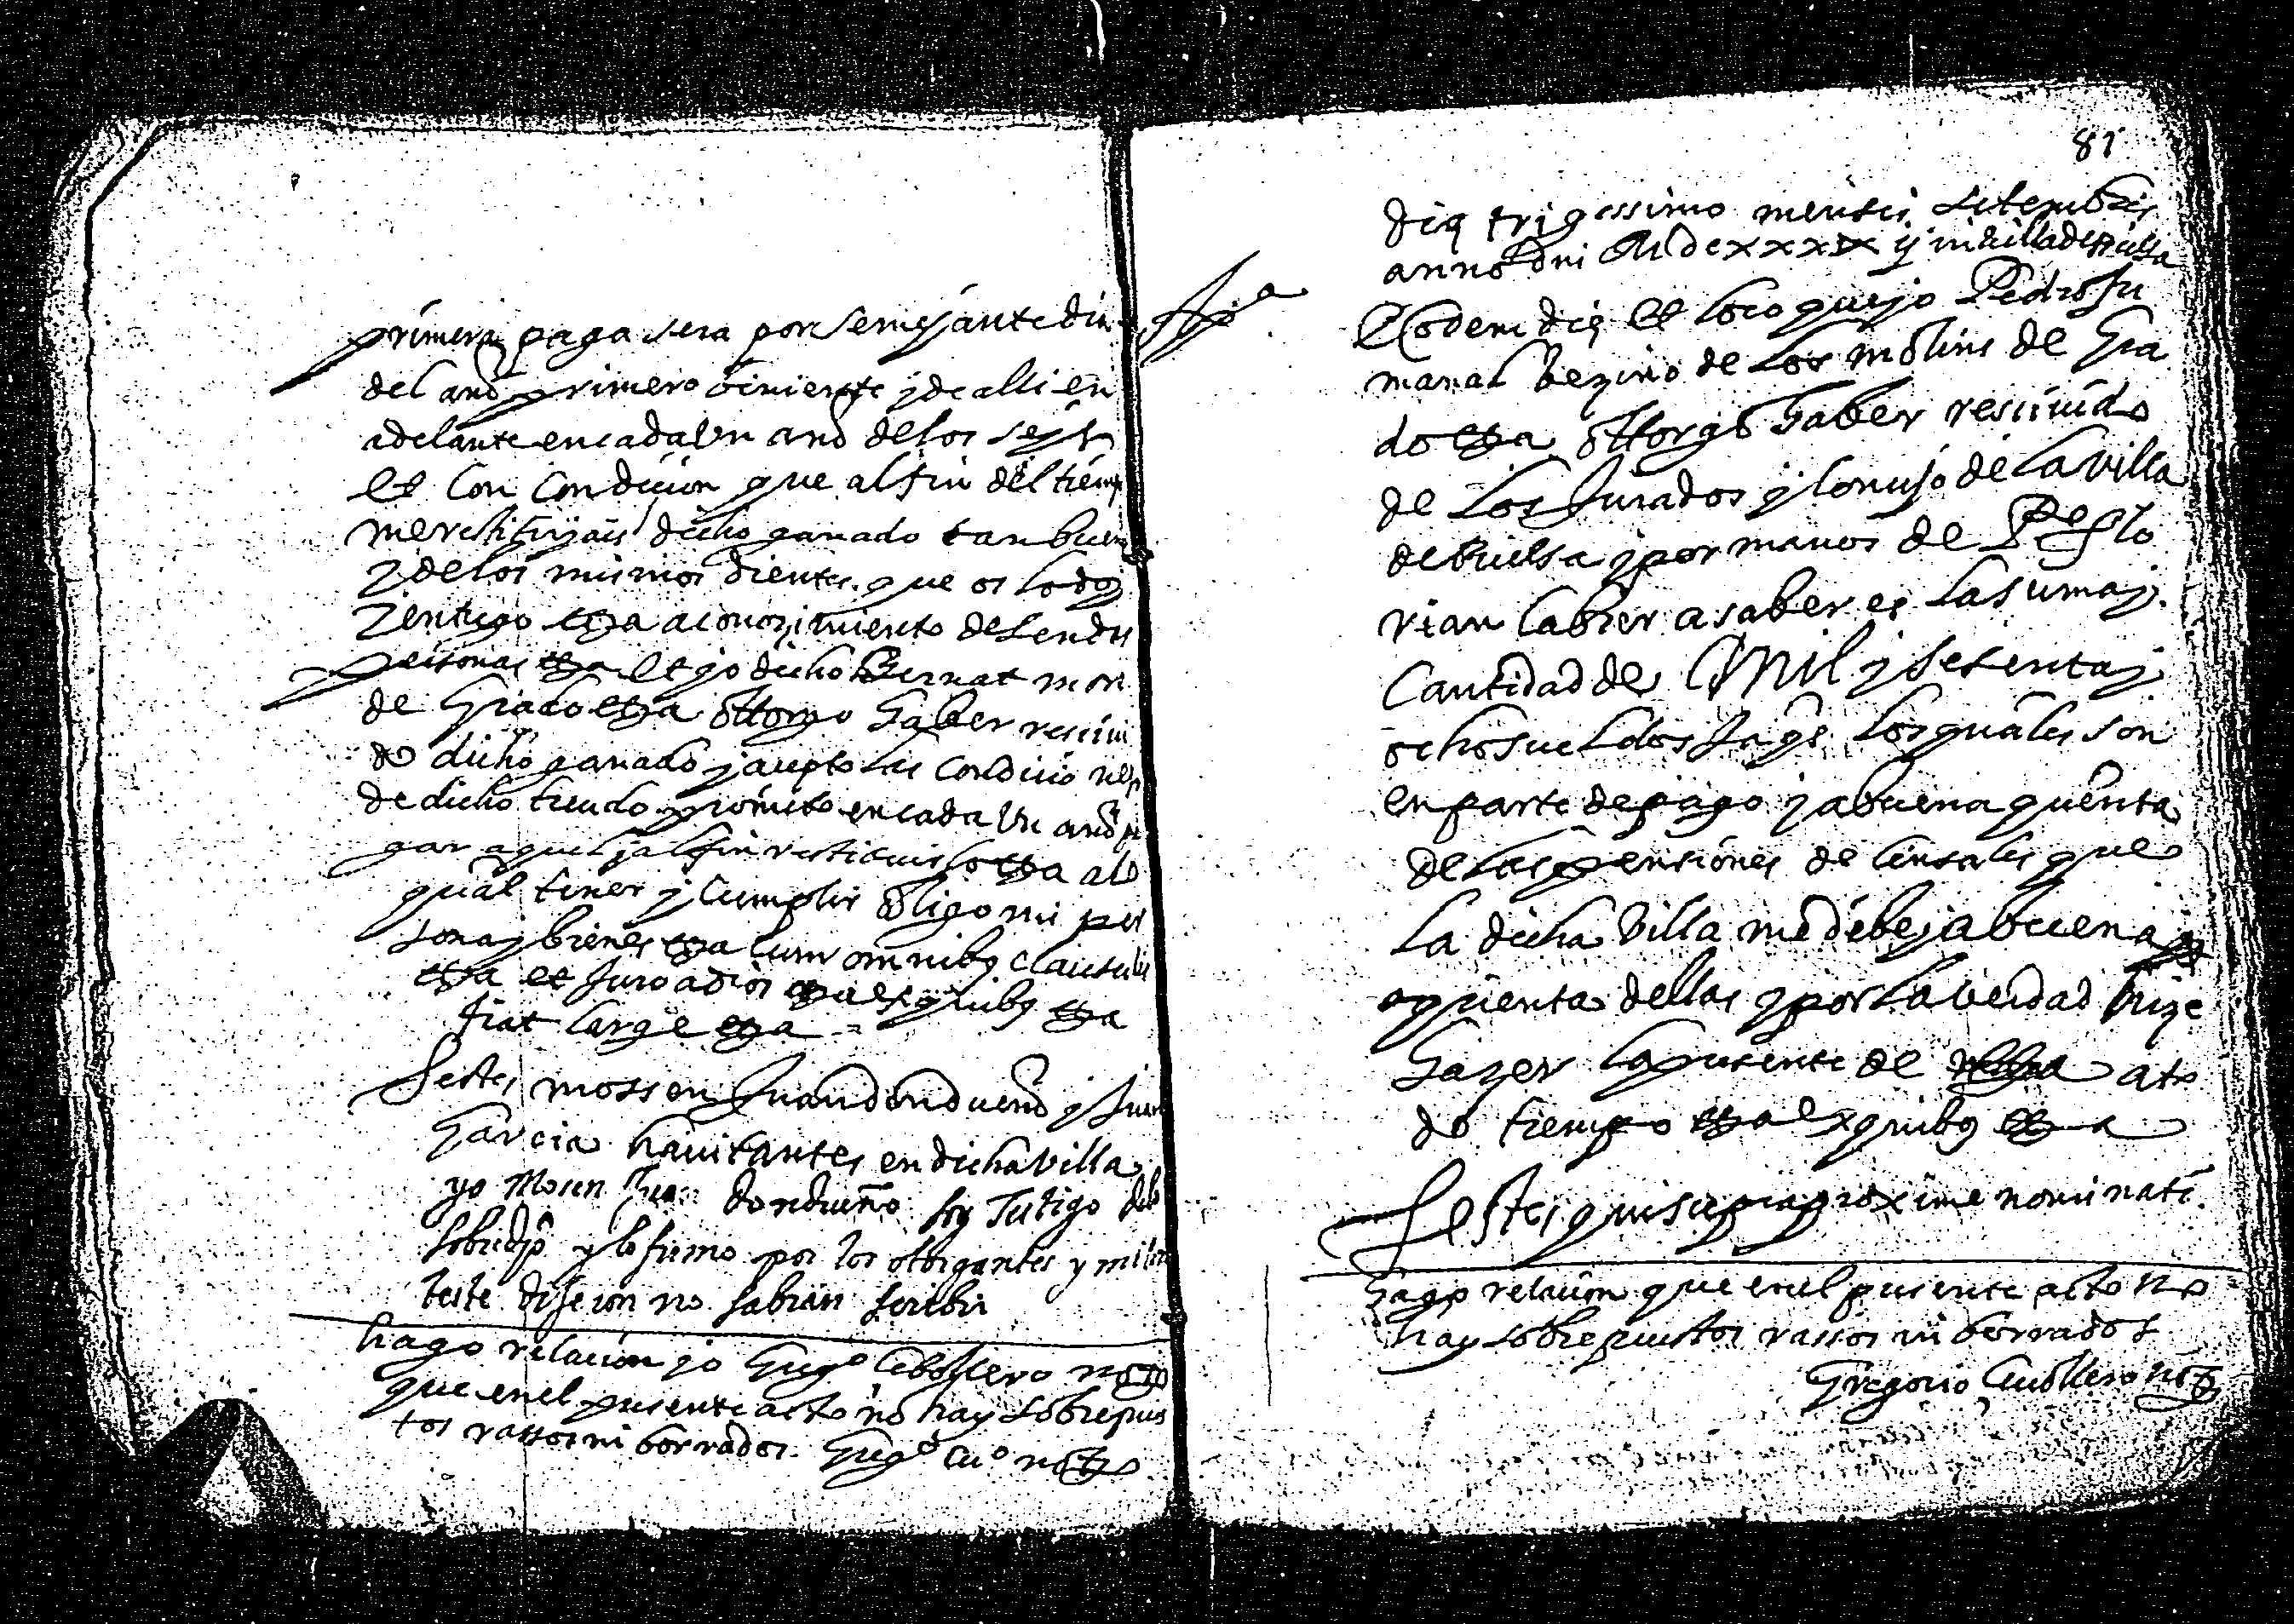 primera paga sera por semejante dia
del año primero biniente y de alli en
adelante en cada un año de los seys
et con condicion que al fin del tiempo
me restituyais dicho ganado tan buen
y de los mismos dientes que os lo doy
y entrego etza a conozimiento de sendas
personas etza et yo dicho Bernat mor
de Giado etza ottorgo haber resciui
do dicho ganado y acepto las condiciones
de dicho treudo prometo en cada un año pa
gar aquel y al fin restituirlo etza a lo
qual tener y cumplir obligo mi per
sona y bienes etza cum omnibus clausulis
etza et juro a dios etza ex quibus etza
fiat large etza =
Testes mossen Juan dondueño y Juan
Garcia hauitantes en dicha villa
yo Mosen Juan dondueño soy Testigo de lo
sobredho y lo firmo por los otorgantes y mi con
teste dixeron no sabian scribir
hago relacion yo Gregº Cebollero not
que en el presente acto no hay sobrepues
tos rassos ni borrados Gregº Cuº not
81
die trigessimo mensis setembris
anno dni M dc xxxx ij in villa de Bielsa
Apa
Eodem die et loco que yo Pedro Fu
manal bezino de los molins de Gra
do etza ottorgo haber resciuido
de los Jurados y concejo de la villa
de bielsa y por manos de Pº Flo
rian cabrer a saber es la suma y
cantidad de Mil y setenta y
ocho sueldos Jaqs los quales son
en parte de pago y a buena quenta
de las pensiones de censales que
la dicha Villa me debe y a buena
quenta dellas y por la verdad hize
hazer la presente de a to
do tiempo etza ex quibus etza
Testes qui supra proxime nominati
hago relacion que en el presente acto no
hay sobrepuestos rassos ni borrados
Gregorio Cuollero not